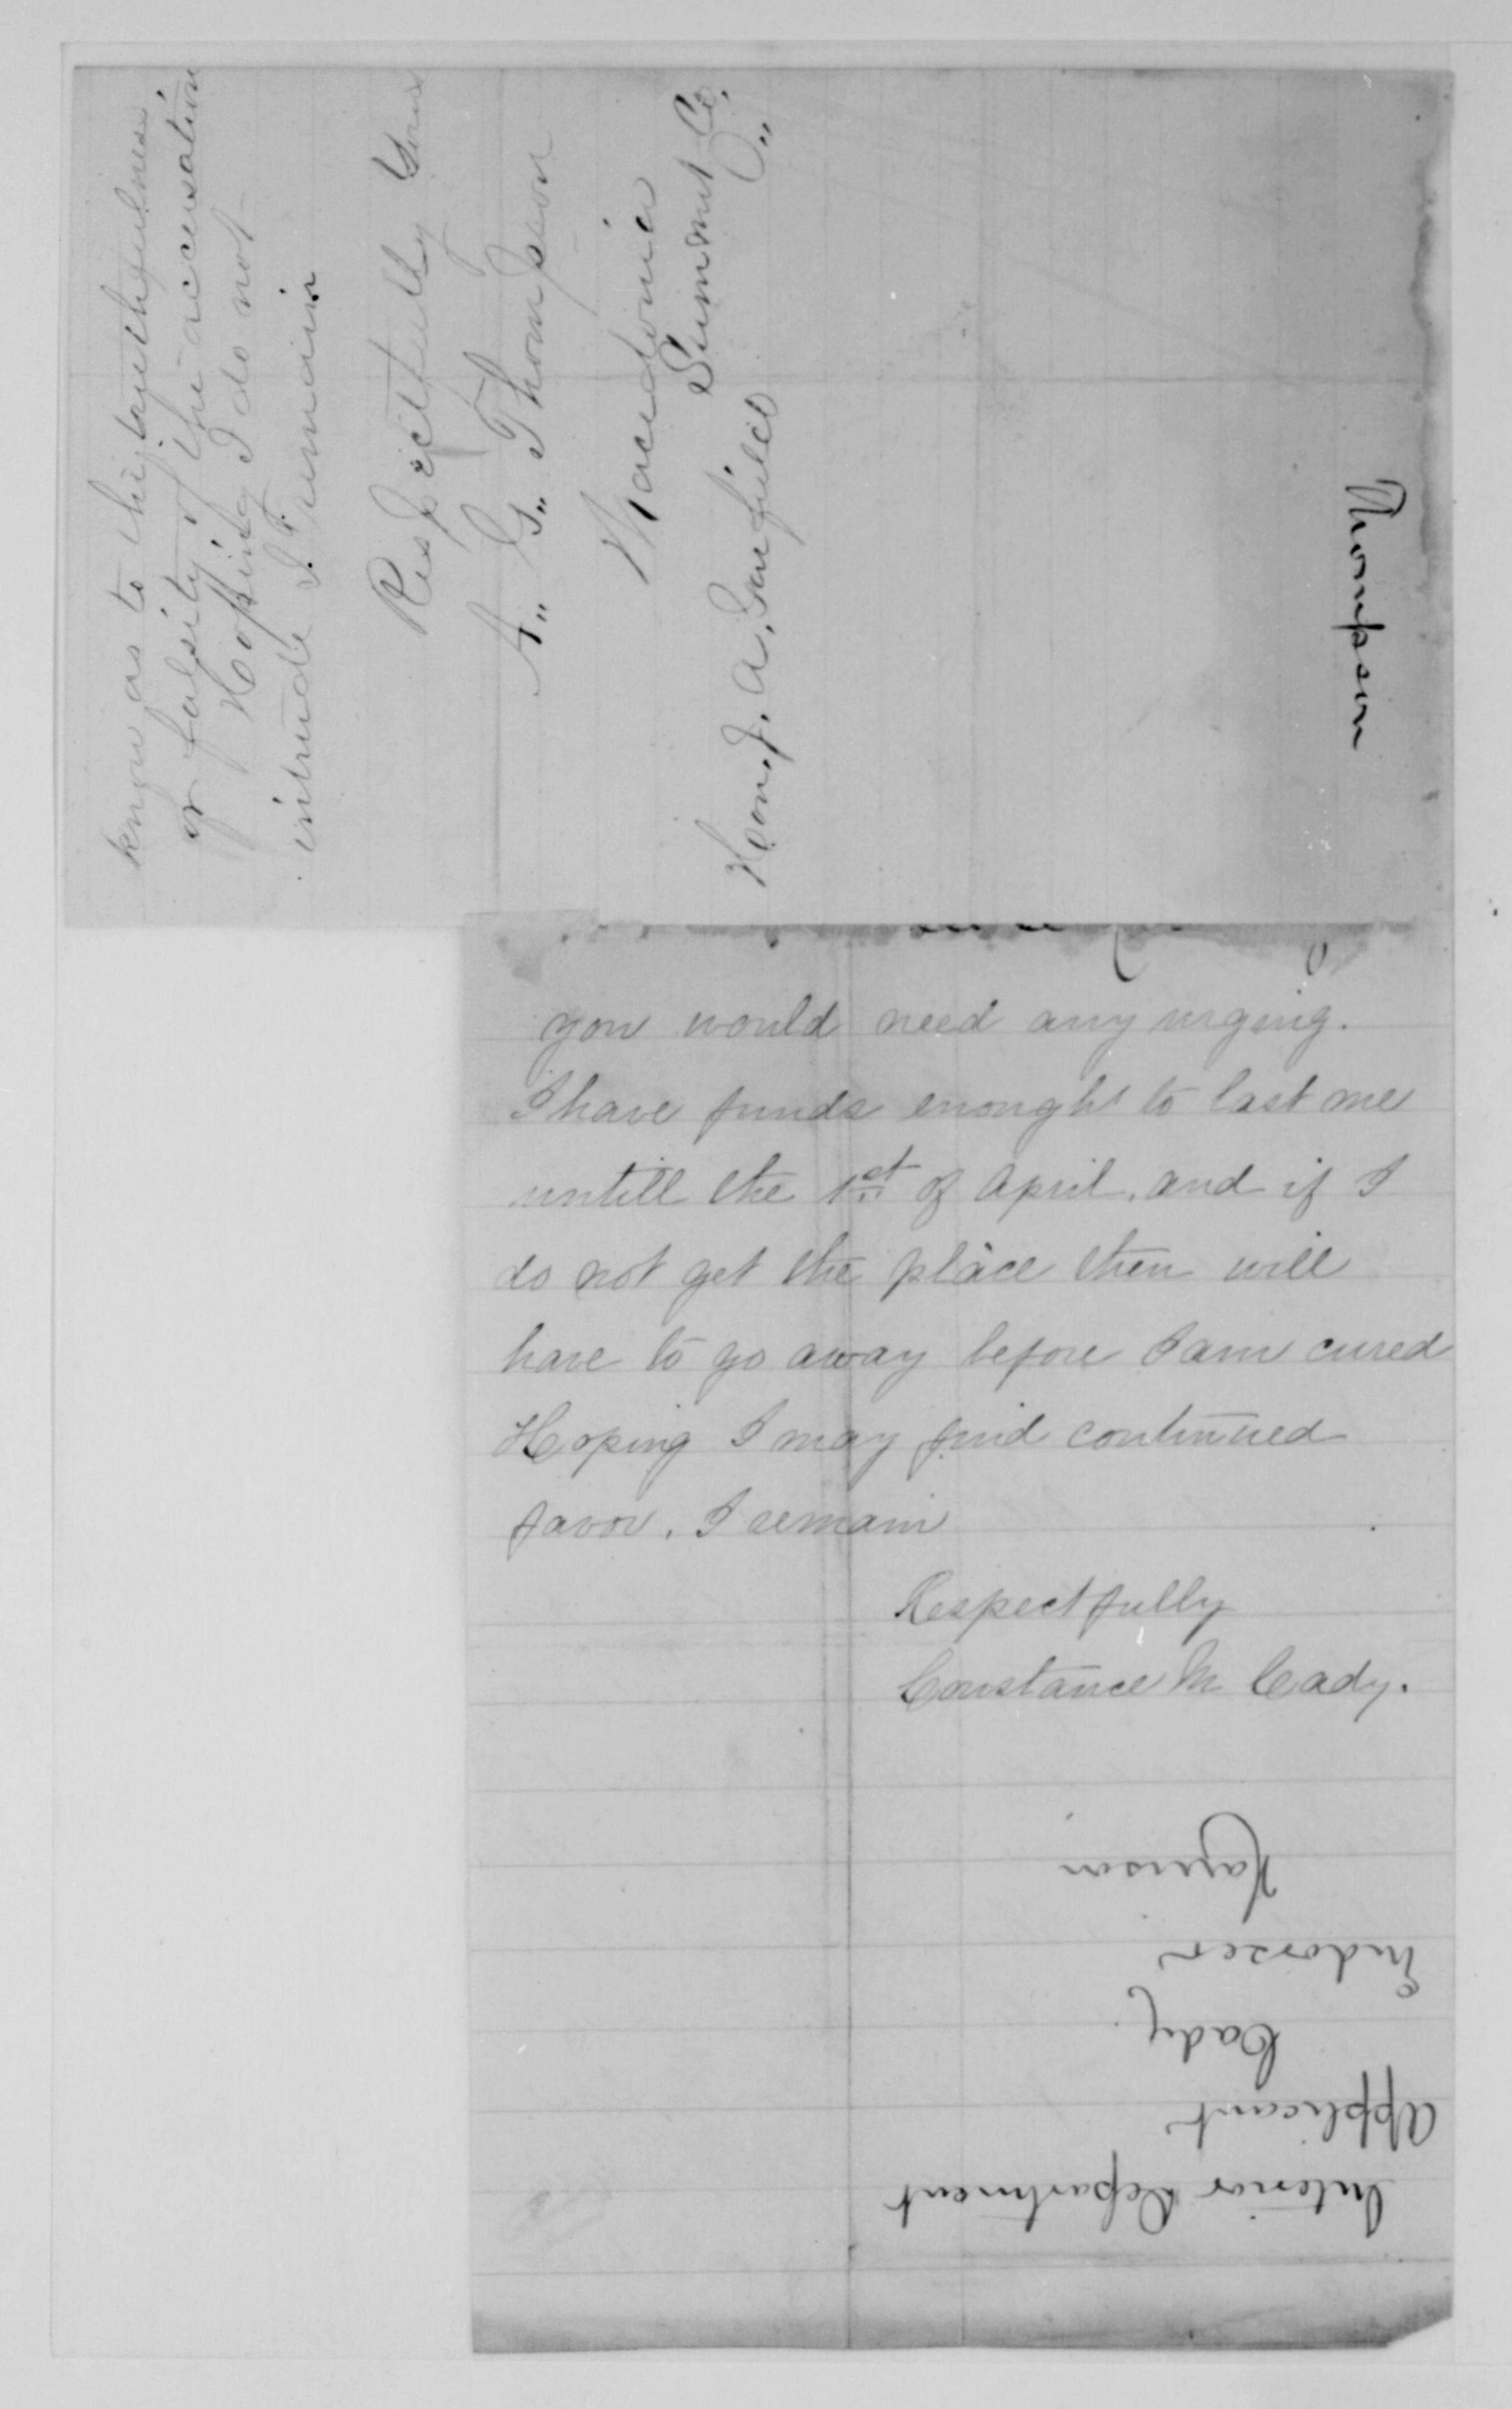 know as to thi truthfulness,
or falsity, of the accusation
Hoping I do not
intrude I remain
Respectfully Yours
A. G. Thompson
Macedonia
Summit Co.
O.
Hon. J. A. Garfield
Thompson
you would need any urging.
I have funds enough to last me
untill the 1st of April, and if I
do not get the place then will
have to go away before I am cured
Hoping I may find continued
favor, I remain
Respectfully
Constance M Cady.
Interior Department
Applicant
Cady
Endorser